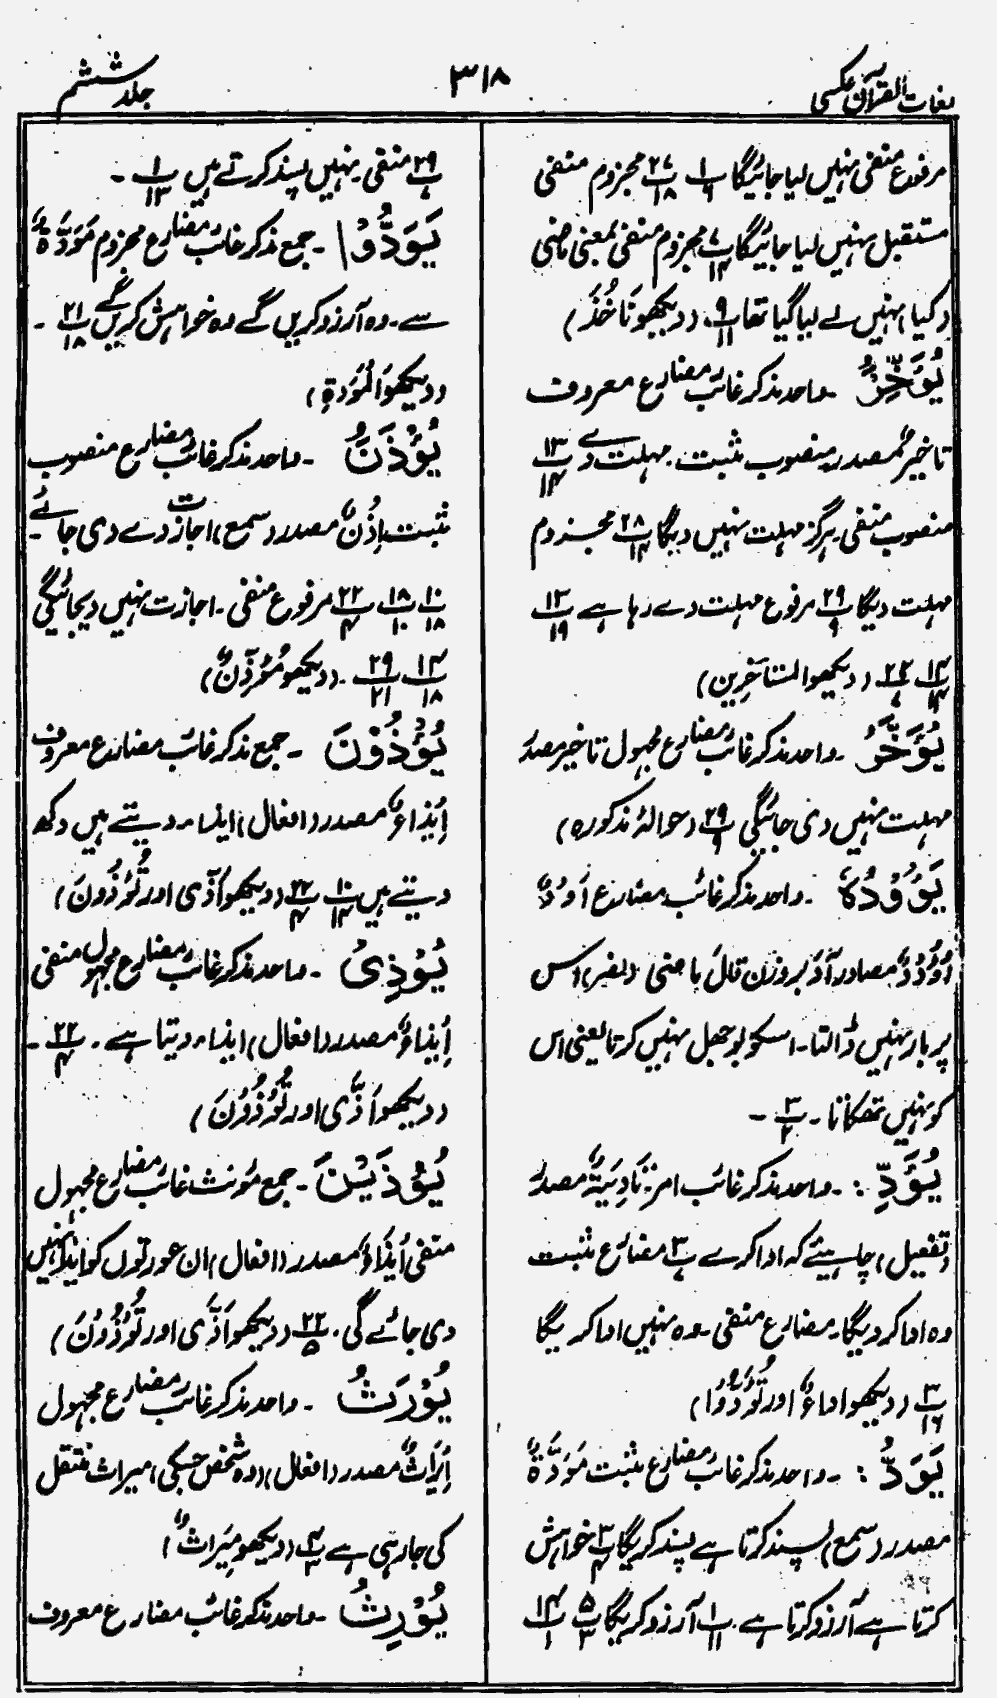 لغات القرآن عکسی
۳۱۸
جلد ششم
مرفوع منفی نہیں لیا جائیگا پ ۱/۶ ۲۷/۱۸ مجزوم منفی
مستقبل نہیں لیا جائیگا مجزوم منفی بمعنی ماضی
(کیا) نہیں لے لیا گیا تھا پ ۹/۱۱ (دیکھو تَاْخُذَ)
یُؤَخِّرَ ۔ واحد مذکر غائب مضارع معروف
تاخیرٌ مصدر منصوب مثبت۔ مہلت دے ۱۳/۱۴
منصوب منفی ہرگز مہلت نہیں دیگا ۲۸/۱۴ مجزوم
مہلت دیگا ۲۹/۹ مرفوع مہلت دے رہا ہے ۱۳/۱۹
۱۴/۱۴ (دیکھو المستأخِرِین)
یُؤَخَّرُ ۔ واحد مذکر غائب مضارع مجہول تاخیر مصدر
مہلت نہیں دی جائیگی ۲۹/۹ (حوالۂ مذکورہ)
یَؤُوْدُہٗ ۔ واحد مذکر غائب مضارع اَوْدٌ
اُوُوْدٌ مصادر آدَ بروزن قالَ ماضی (نصر) اس
پر بار نہیں ڈالتا۔ اسکو بوجھل نہیں کرتا یعنی اس
کو نہیں تھکاتا ۔ ۳/۲ ۔
یُؤَدِّ : ۔ واحد مذکر غائب امر تَادِیَۃٌ مصدر
(تفعیل) چاہیئے کہ ادا کرے مضارع مثبت
وہ ادا کر دیگا۔ مضارع منفی۔ وہ نہیں ادا کریگا
۳/۱۶ (دیکھو اداءٌ اور تُؤَدُّوا)
یَوَدُّ : ۔ واحد مذکر غائب مضارع مثبت مَوَدَّۃٌ
مصدر (سمع) پسند کرتا ہے پسند کریگا ۳/۴ خواہش
کرتا ہے آرزو کرتا ہے۔ ۱/۱۱ آرزو کریگا ۵/۳ ۱۴/۱
۲۹ منفی نہیں پسند کرتے ہیں ۱/۱۳ ۔
یَوَدُّوْا ۔ جمع مذکر غائب مضارع مجزوم مَوَدَّۃٌ
سے۔ وہ آرزو کریں گے وہ خواہش کریں گے ۲۱/۱۸ ۔
(دیکھو اَلْمَوَدَّۃِ)
یُؤْذَنَ ۔ واحد مذکر غائب مضارع منصوب
مثبت اِذْنٌ مصدر (سمع) اجازت دے دی جائے۔
۱۰/۱۸ ۱۸/۱۰ ۲۲/۴ مرفوع منفی ۔ اجازت نہیں دیجائیگی
۱۴/۱۸ ۲۹/۲۱ ۔ (دیکھو مُؤَذِّنٌ)
یُؤْذُوْنَ ۔ جمع مذکر غائب مضارع معروف
اِیْذَاءٌ مصدر (افعال) ایذاء دیتے ہیں دکھ
دیتے ہیں ۱۰/۱۴ ۲۲/۴ (دیکھو اَذًی اور تُؤْذُوْنَ)
یُؤْذِیْ ۔ واحد مذکر غائب مضارع مجہول منفی
اِیْذَاءٌ مصدر (افعال) ایذاء دیتا ہے ۔ ۲۲/۴ ۔
(دیکھو اَذًی اور تُؤْذُوْنَ)
یُؤْذَیْنَ ۔ جمع مؤنث غائب مضارع مجہول
منفی اِیْذَاءٌ مصدر (افعال) ان عورتوں کو ایذا نہیں
دی جائے گی ۔ ۲۲/۵ (دیکھو اَذًی اور تُؤْذُوْنَ)
یُوْرَثُ ۔ واحد مذکر غائب مضارع مجہول
اِیْرَاثٌ مصدر (افعال) (وہ شخص جسکی) میراث منتقل
کی جارہی ہے (دیکھو مِیْرَاثٌ)
یُوْرِثُ ۔ واحد مذکر غائب مضارع معروف